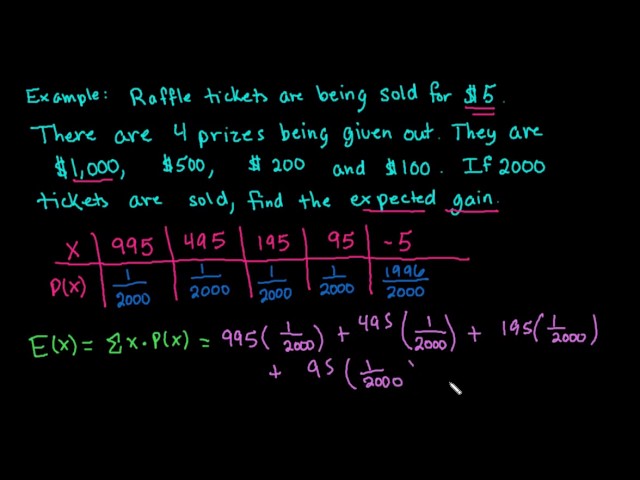 Example: Raffle tickets are being sold for $5.
There are 4 prizes being given out. They are
$1,000, $500, $200 and $100. If 2000
tickets are sold, find the expected gain.
X 995 495 195 95 -5
P(x) 1/2000 1/2000 1/2000 1/2000 1996/2000
E(x) = Σx·P(x) = 995(1/2000) + 495(1/2000) + 195(1/2000)
+ 95(1/2000